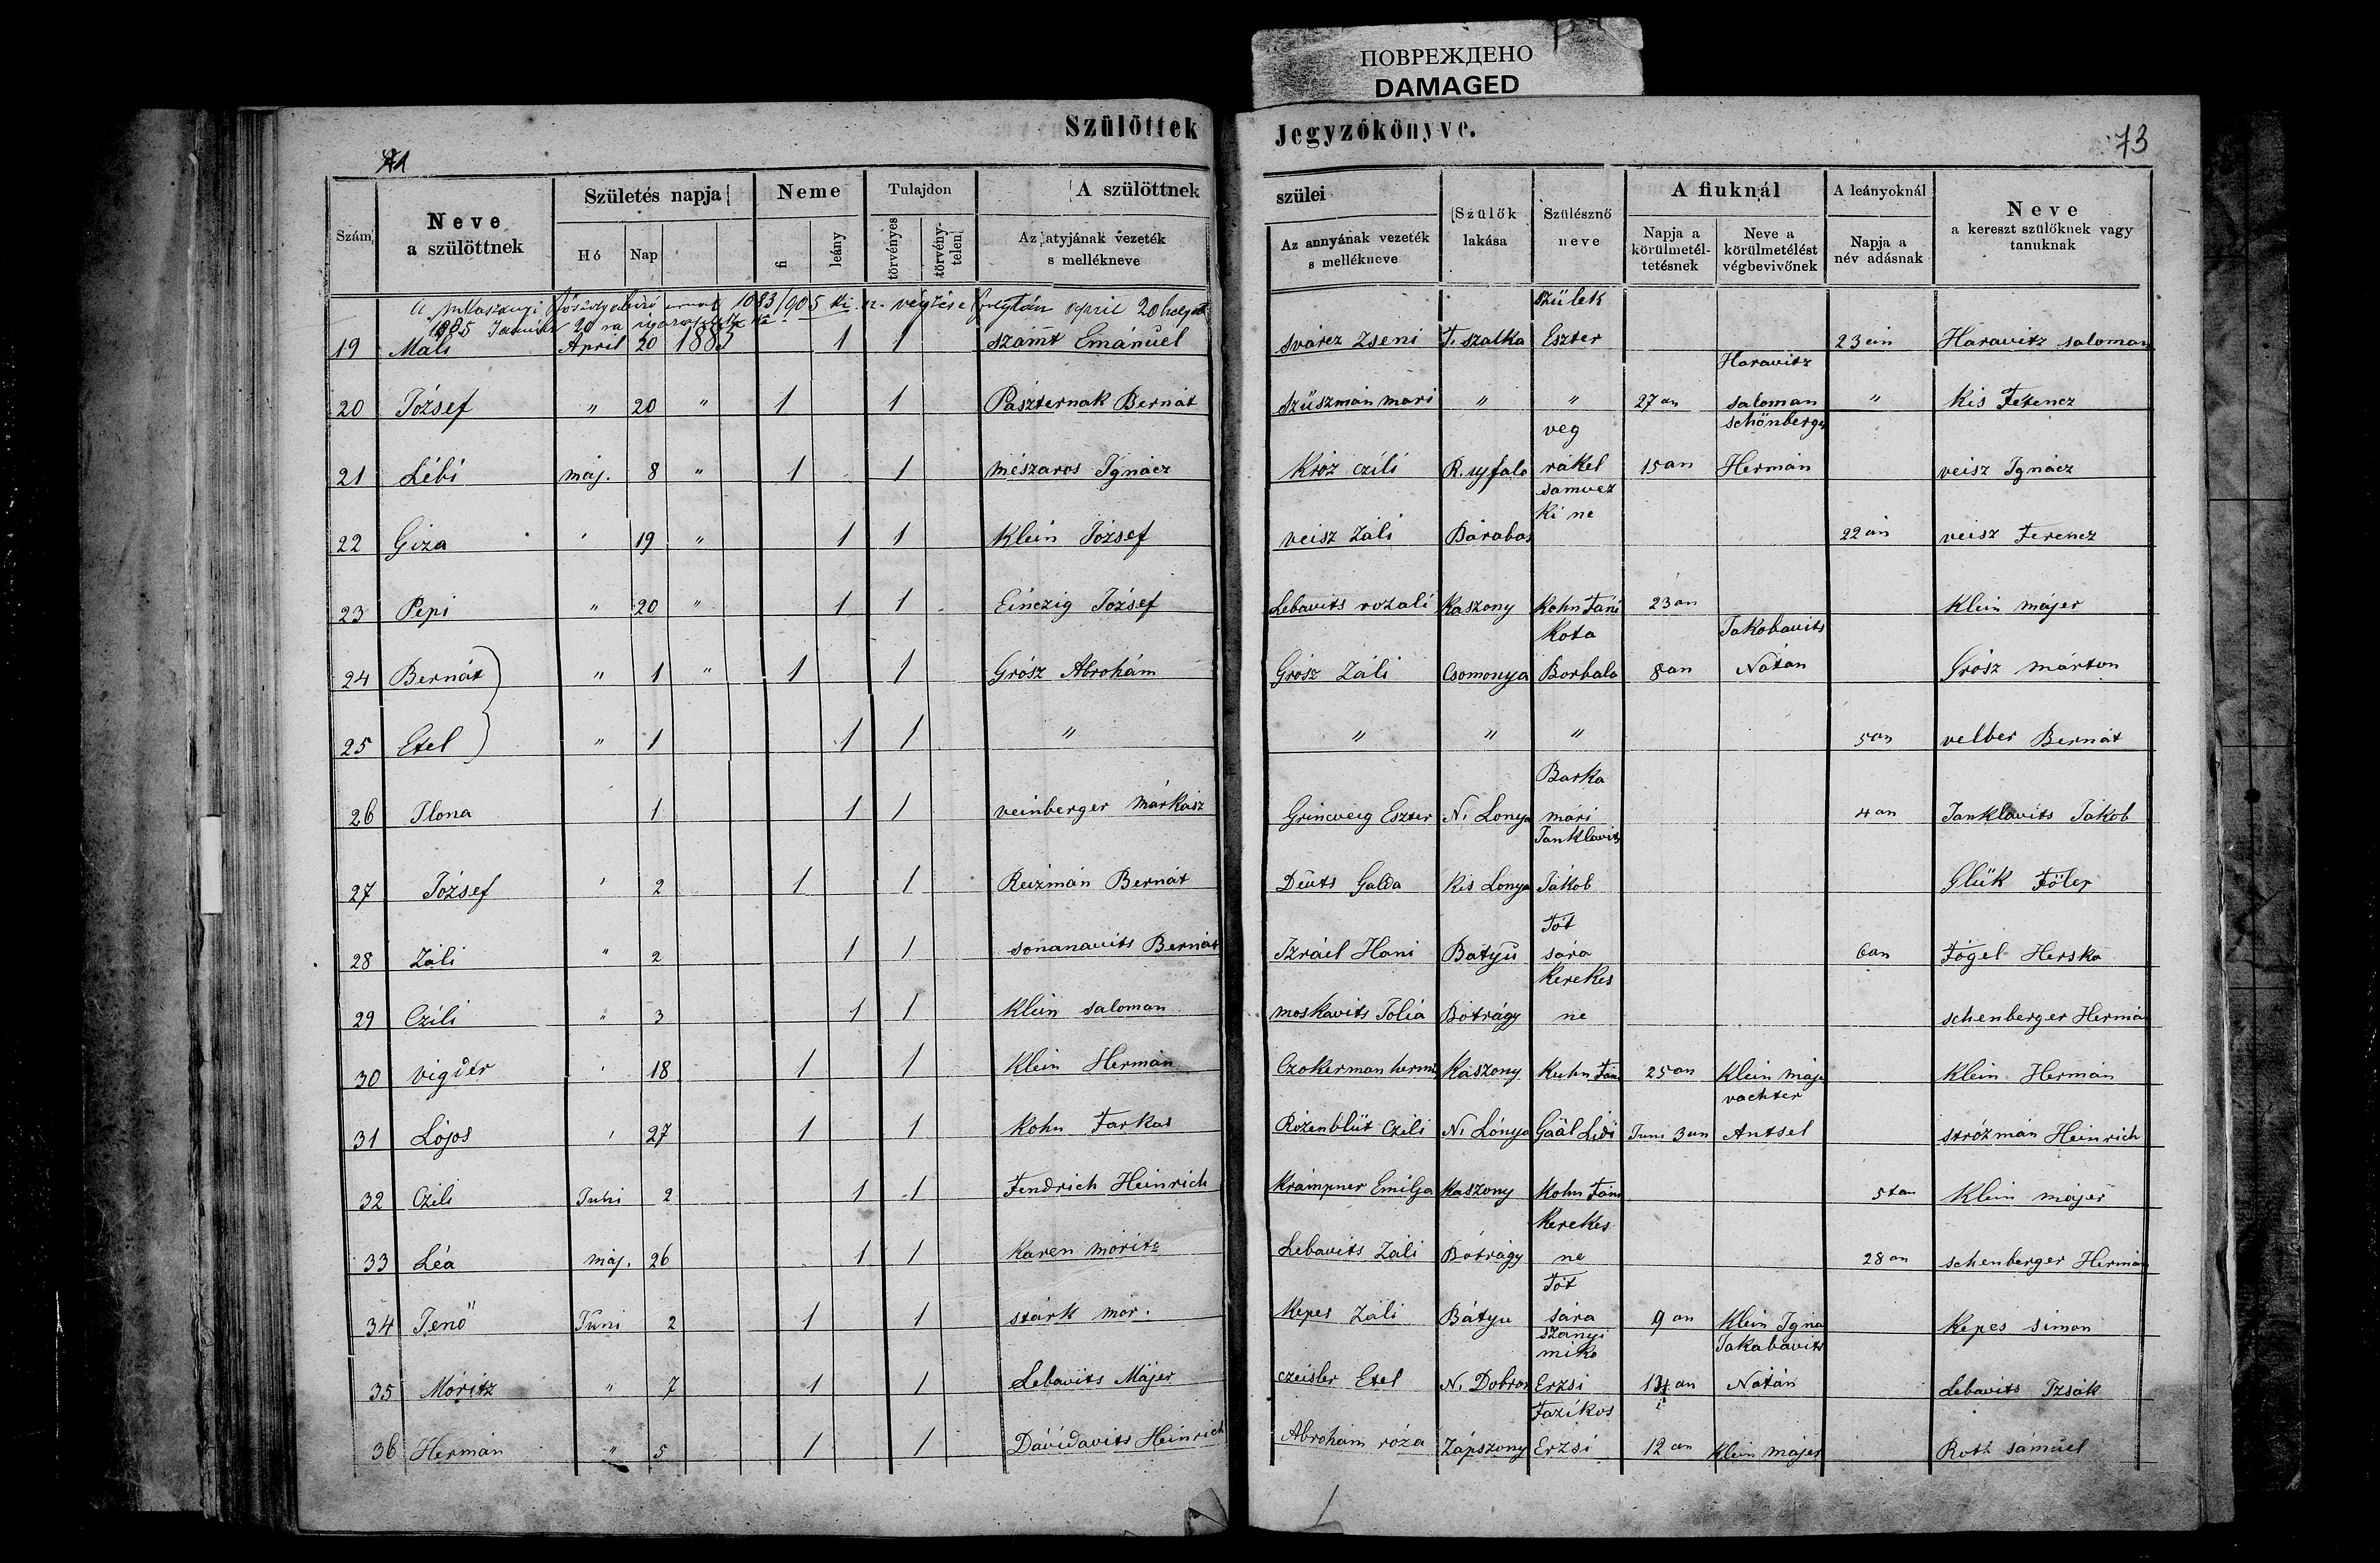 ПОВРЕЖДЕНО
DAMAGED
Szülöttek Jegyzőkönyve.
73
Szám
Neve a szülöttnek
Születés napja
Hó Nap
Neme
fi leány
Tulajdon
törvényes törvénytelen
A szülöttnek szülei
Az atyjának vezeték s mellékneve
Az annyának vezeték s mellékneve
Szülők lakása
Szülésznő neve
A fiuknál
Napja a körülmetéltetésnek
Neve a körülmetélést végbevivőnek
A leányoknál
Napja a név adásnak
Neve a kereszt szülőknek vagy tanuknak
1083/905 ki. végzése folytán april 20 helyett
19 Máli April 20 1885 1 1 számt Emánuel svárcz Zseni T. szalka szülek Eszter 23 án Haravitz saloman
20 József " 20 " 1 1 Paszternak Bernát szüszmán mari " " 27 an Haravitz saloman " Kis Ferencz
21 Lébi máj. 8 " 1 1 mészaros Ignácz Króz czili R. ujfalo veg rákel 15 an schönberger Hermán veisz Ignácz
22 Giza 19 " 1 1 Klein József veisz Záli Bárabas 22 án veisz Ferencz
23 Pepi " 20 " 1 1 Einczig József Lebavits rozali Kaszony Kohn Fáni 23 an Klein májer
24 Bernát " 1 " 1 1 Grósz Abrohám Grósz Záli Csomonya Kota Borbala 8 an Jakobavits Nátán Grósz márton
25 Etel " 1 1 1 " " " " 5 an velber Bernát
26 Ilona 1 1 1 veinberger márkász Grincveig Eszter N. Lonya Barka mári 4 an Janklavits Jákob
27 József 2 1 1 Reizmán Bernát Deuts Galda Kis Lonya Janklavits Jákob Glük
28 Záli " 2 1 1 Bernát Izráel Hani Batyu Tót sára 6 an Fógel Hersko
29 Czili " 3 1 1 Klein saloman moskavits Tolia Bótrágy Kerekes ne schenberger Hermán
30 vigdér 18 1 1 Klein Hermán Czokerman Kászony Kuhn Fáni 25 an Klein máje Klein Hermán
31 Lójos 27 1 1 Kohn Farkas Rózenblüt Czili N. Lónya Gaál Lidi Juni 3 an vachter Antsel strózmán Heinrich
32 Czili Juni 2 1 1 Fendrich Heinrich Krámpner Emilja Kaszony Kohn Fáni 5 tan Klein májer
33 Léa máj. 26 1 1 Karen moritz Lebavits Záli Bótrágy Kerekes ne 28 an schenberger Hermán
34 Jenő Juni 2 1 1 stárk mór. Kepes Záli Bátyu Tót sára 9 an Klein Igna Kepes simon
35 Móritz " 7 1 1 Lebavits Májer czeisler Etel N. Dobron szányi miko Erzsi 14 an Jakabavits Nátán Lebavits Izsák
36 Hermán " 5 1 1 Dávidavits Heinrich Abrohám róza Zápszony Fazíkos Erzsi 12 an Klein májer Roth sámuel